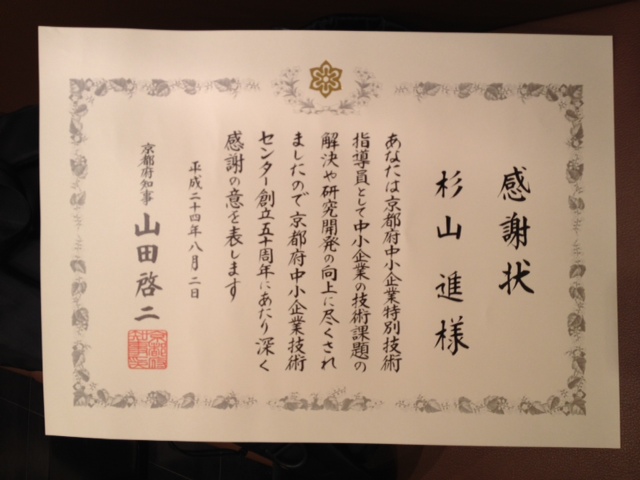 感謝状
杉山進様
あなたは京都府中小企業特別技術
指導員として中小企業の技術課題の
解決や研究開発の向上に尽くされ
ましたので京都府中小企業技術
センター創立五十周年にあたり深く
感謝の意を表します
平成二十四年八月二日
京都府知事 山田啓二